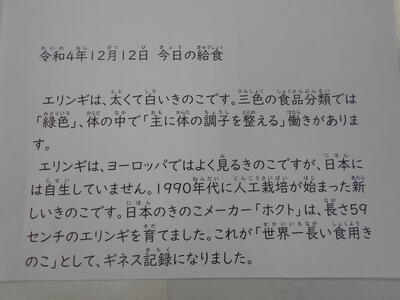 令和4年12月12日 今日の給食
エリンギは、太くて白いきのこです。三色の食品分類では
「緑色」、体の中で「主に体の調子を整える」働きがありま
す。
エリンギは、ヨーロッパではよく見るきのこですが、日本に
は自生していません。1990年代に人工栽培が始まった新
しいきのこです。日本のきのこメーカー「ホクト」は、長さ59
センチのエリンギを育てました。これが「世界一長い食用き
のこ」として、ギネス記録になりました。